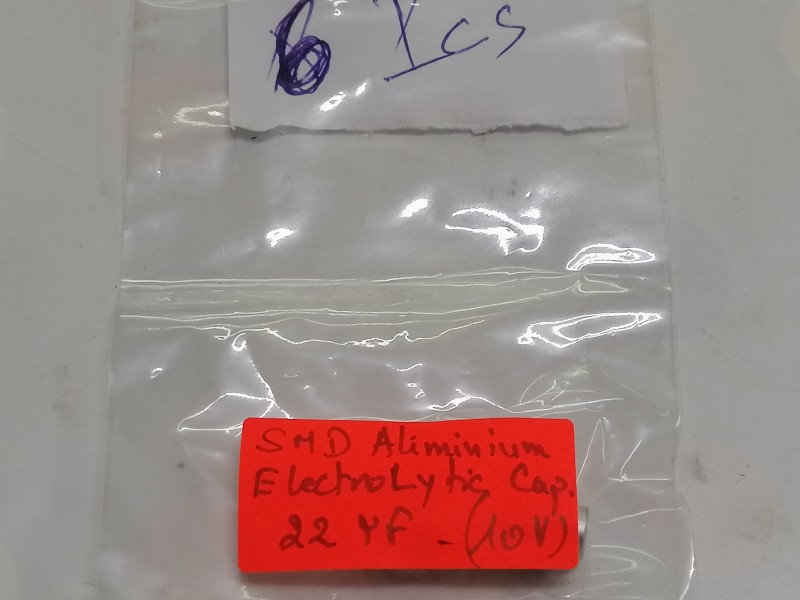 6 Ics
SMD Aliminium
Electrolytic Cap.
22 µF - (10V)